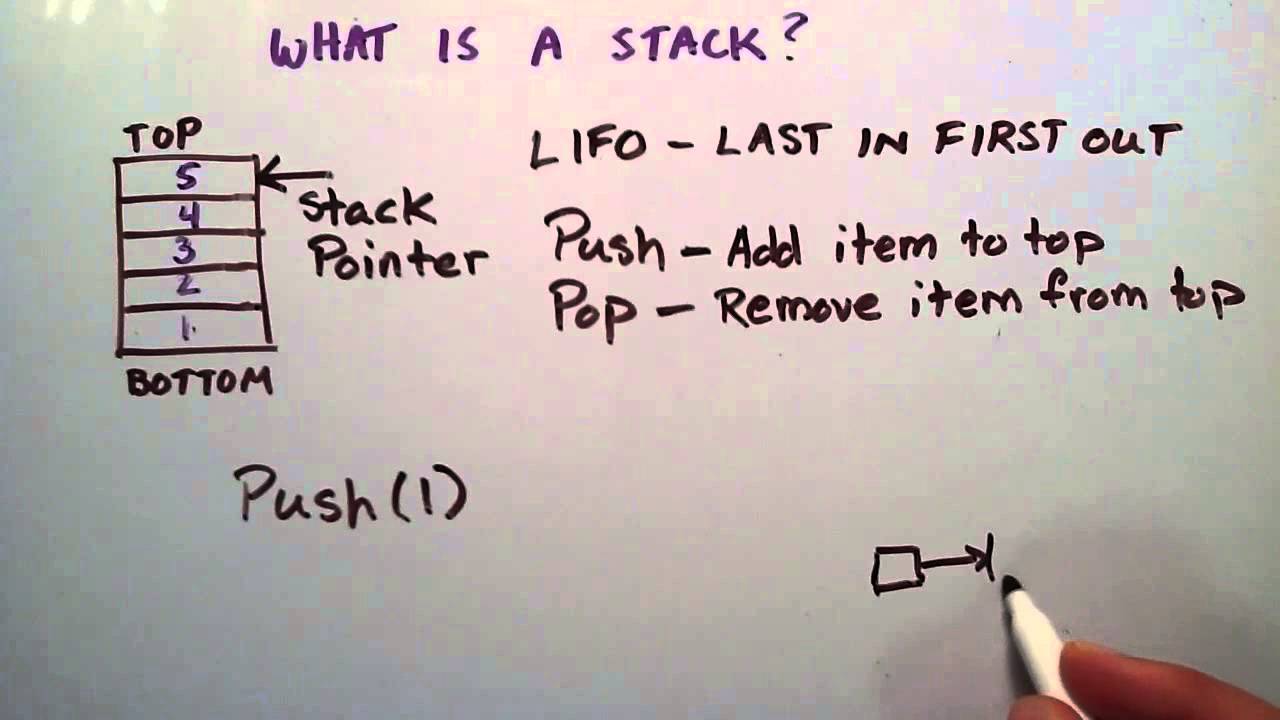 WHAT IS A STACK?
TOP
5
4
3
2
1
BOTTOM
Stack
Pointer
LIFO - LAST IN FIRST OUT
Push - Add item to top
Pop - Remove item from top
Push(1)